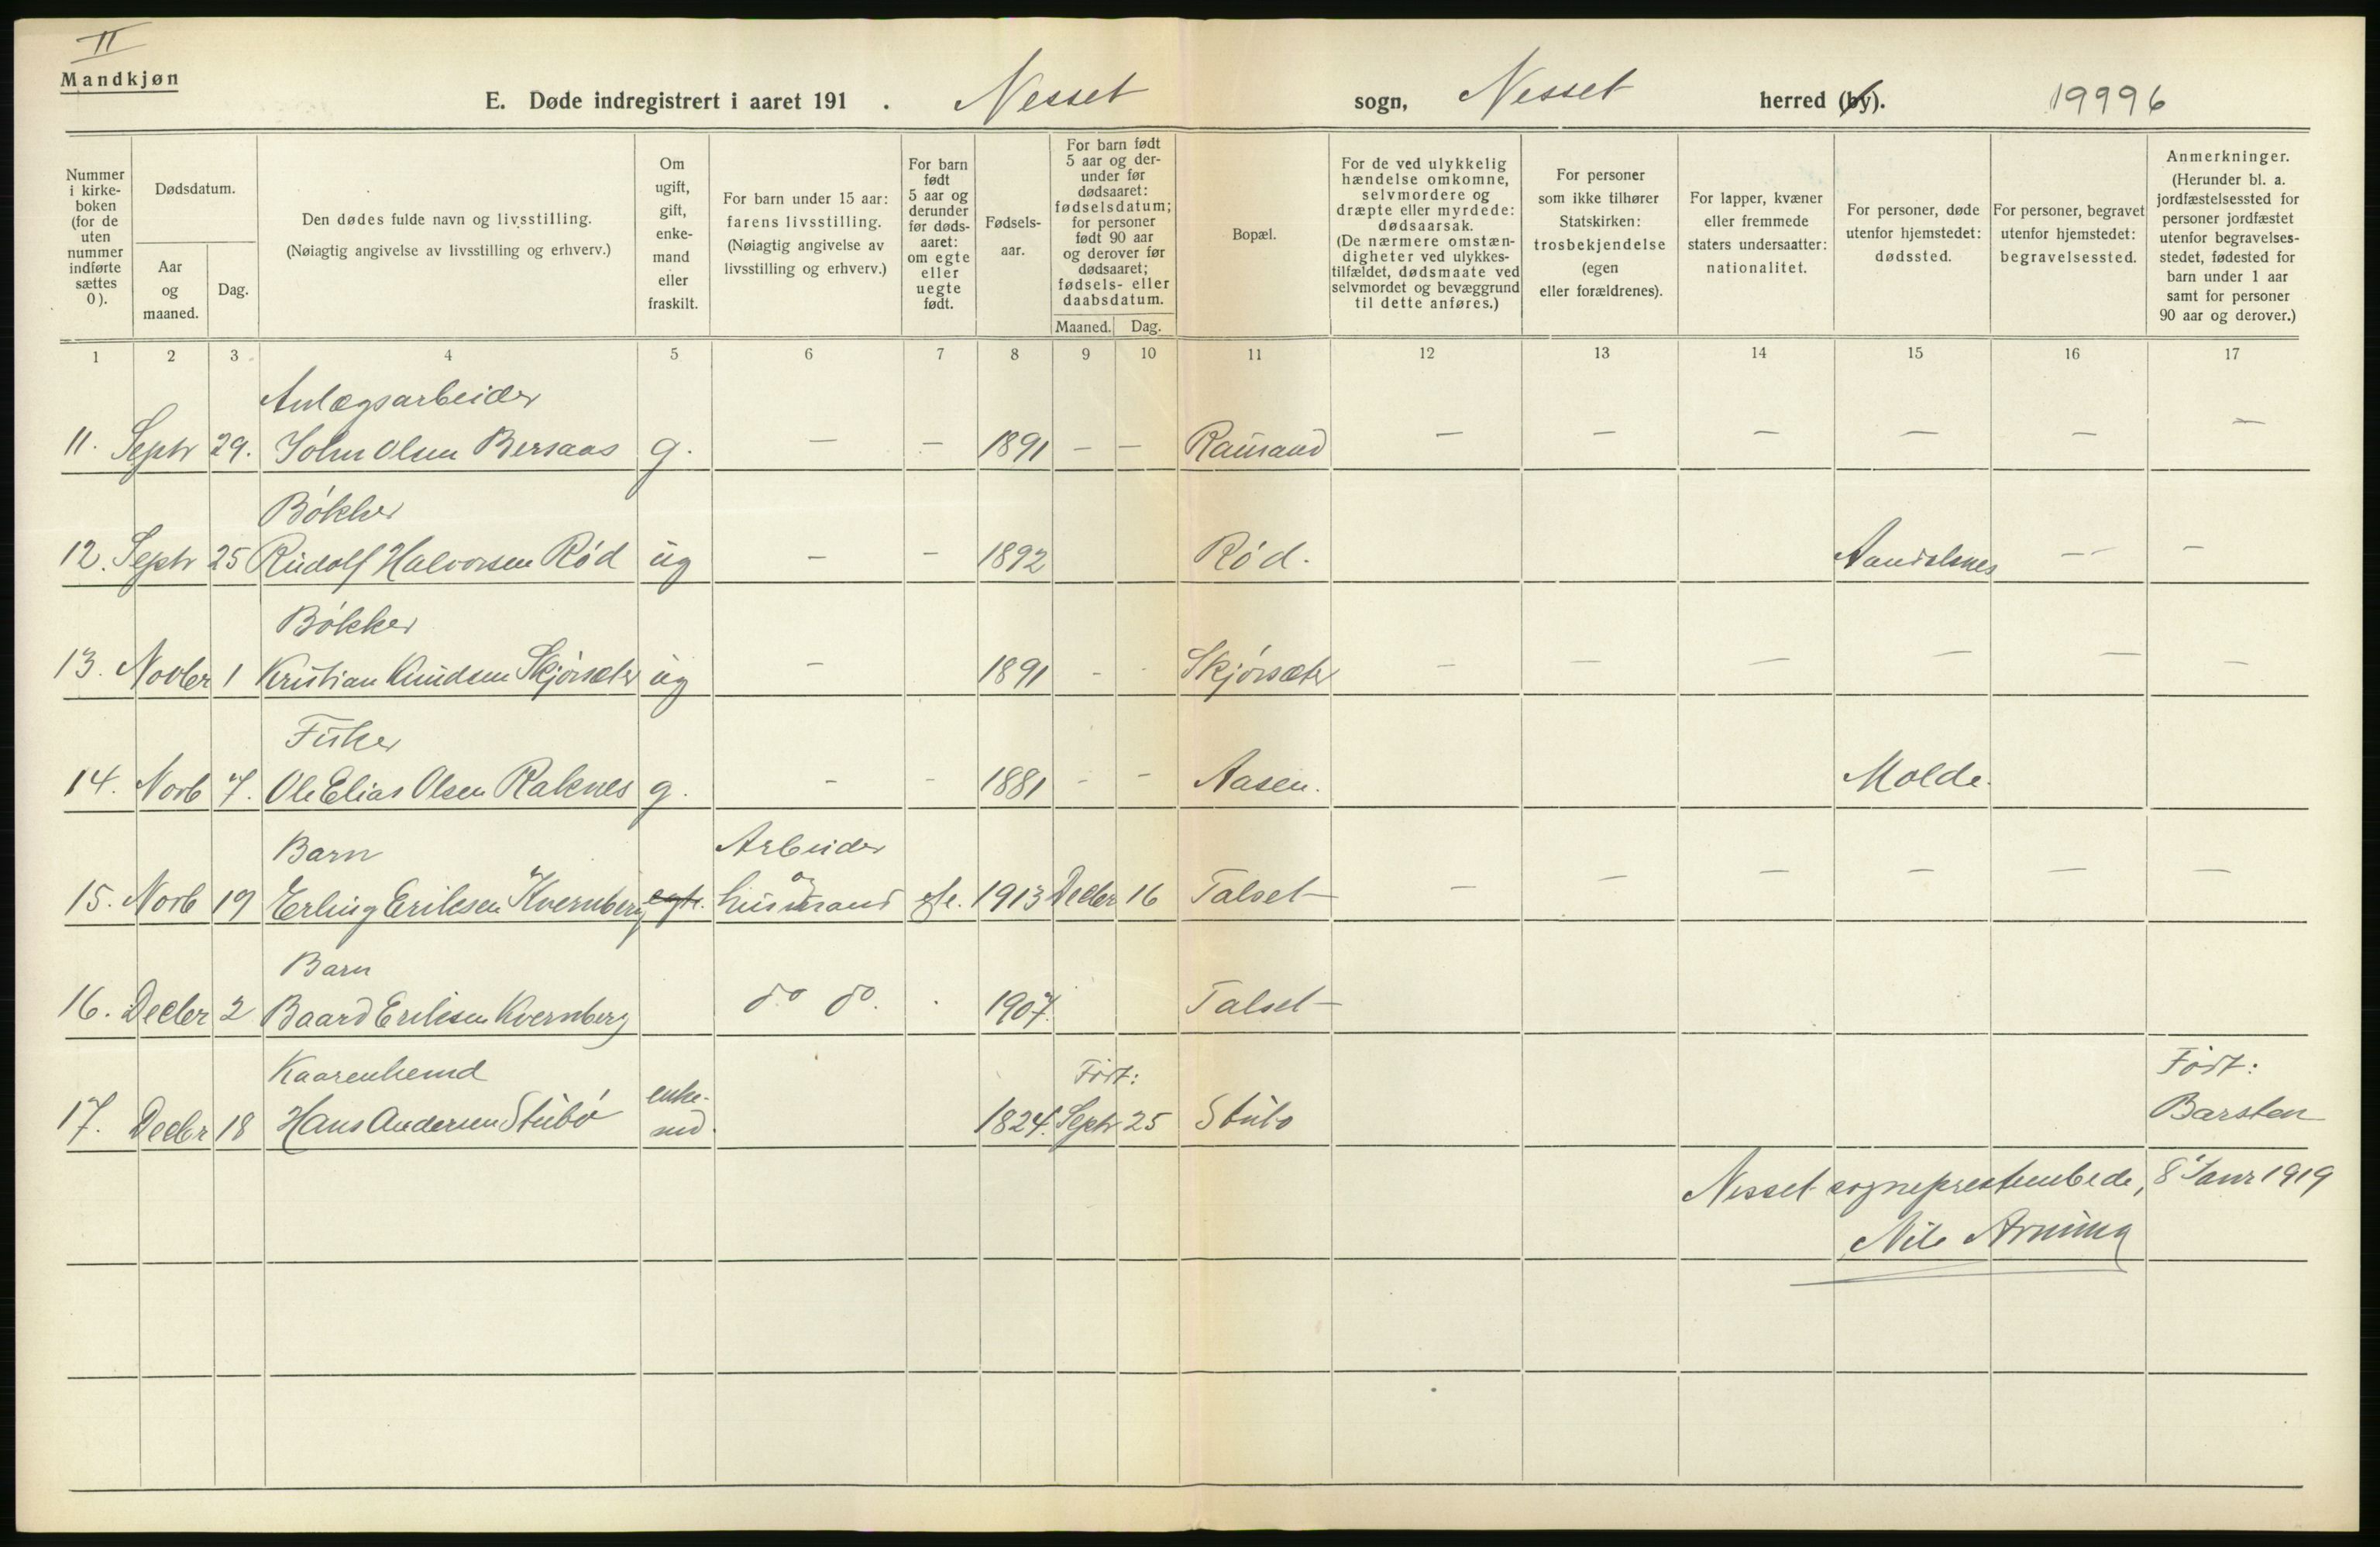 II
Mandkjøn
E. Døde indregistrert i aaret 191 . Nesset sogn, Nesset herred (by). 19996
Nummer i kirke-boken (for de uten nummer indførte sættes 0).
Dødsdatum.
Aar og maaned.
Dag.
Den dødes fulde navn og livsstilling.
(Nøiagtig angivelse av livsstilling og erhverv.)
Om ugift, gift, enke-mand eller fraskilt.
For barn under 15 aar: farens livsstilling.
(Nøiagtig angivelse av livsstilling og erhverv.)
For barn født 5 aar og derunder før døds-aaret: om egte eller uegte født.
Fødsels-aar.
For barn født 5 aar og der-under før dødsaaret: fødselsdatum; for personer født 90 aar og derover før dødsaaret; fødsels- eller daabsdatum.
Maaned. Dag.
Bopæl.
For de ved ulykkelig hændelse omkomne, selvmordere og dræpte eller myrdede: dødsaarsak.
(De nærmere omstæn-digheter ved ulykkes-tilfældet, dødsmaate ved selvmordet og bevæggrund til dette anføres.)
For personer som ikke tilhører Statskirken: trosbekjendelse (egen eller forældrenes).
For lapper, kvæner eller fremmede staters undersaatter: nationalitet.
For personer, døde utenfor hjemstedet: dødssted.
For personer, begravet utenfor hjemstedet: begravelsessted.
Anmerkninger.
(Herunder bl. a. jordfæstelsessted for personer jordfæstet utenfor begravelses-stedet, fødested for barn under 1 aar samt for personer 90 aar og derover.)
1 2 3 4 5 6 7 8 9 10 11 12 13 14 15 16 17
Anlægsarbeider
11. Septr 29. John Olsen Bersaas g. — — 1891 — — Rausand — — — — — —
Bøkker
12. Septr 25 Rudolf Halvorsen Rød ug — — 1892 Rød. Aandalsnes — —
Bøkker
13. Novbr 1 Kristian Knudsen Skjørsæter ug — 1891 - - Skjørsæter — — — — — —
Fisker
14. Novb 7. Ole Elias Olsen Raknes g. — - 1881 - - Aasen. Molde.
Barn Arbeider
15. Novb 19 Erling Eriksen Kvernberg egte. og husmand efe. 1913 Decbr 16 Talset — — — — — —
Barn
16. Decbr 2 Baard Eriksen Kvernberg do do. 1907. Talset
Kaarenkemd enke- Født: Født:
17. Decbr 18 Hans Andersen Stubø md. 1824. Septr 25 Stubo Barsten
Nesset sogneprestembede, 8 Janr 1919
Nils